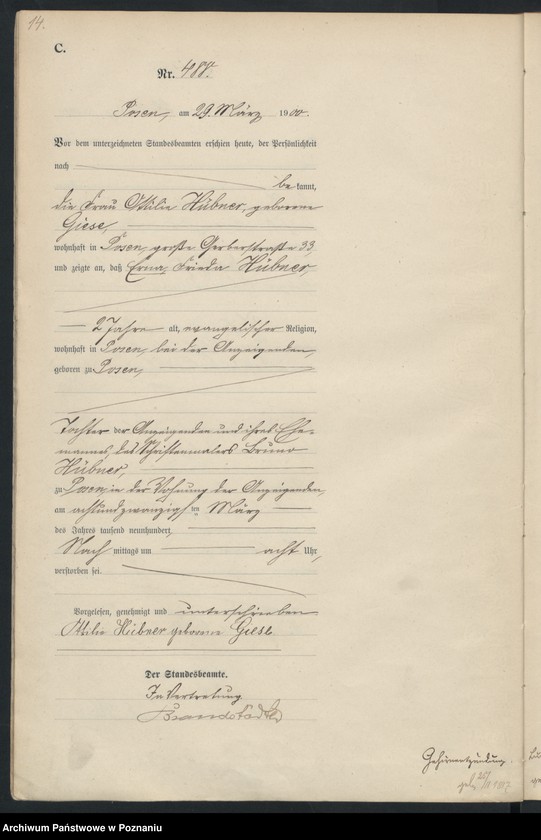 14.
C.
Nr. 488.
Posen, am 29. März 1900.
Vor dem unterzeichneten Standesbeamten erschien heute, der Persönlichkeit
nach
be kannt,
die Frau Ottilie Hübner, geborene
Giese,
wohnhaft in Posen, große Gerberstraße 33,
und zeigte an, daß Erna Frieda Hübner,
2 Jahre alt, evangelischer Religion,
wohnhaft in Posen, bei der Anzeigenden,
geboren zu Posen,
Tochter der Anzeigenden und ihres Ehe-
mannes, des Schriftenmalers Bruno
Hübner,
zu Posen, in der Wohnung der Anzeigenden,
am achtundzwanzigsten März
des Jahres tausend neunhundert
Nach mittags um acht Uhr,
verstorben sei.
Vorgelesen, genehmigt und unterschrieben
Ottilie Hübner geborene Giese
Der Standesbeamte.
In Vertretung
Brandstädter
Gehirnentzündung.
Archiwum Państwowe w Poznaniu